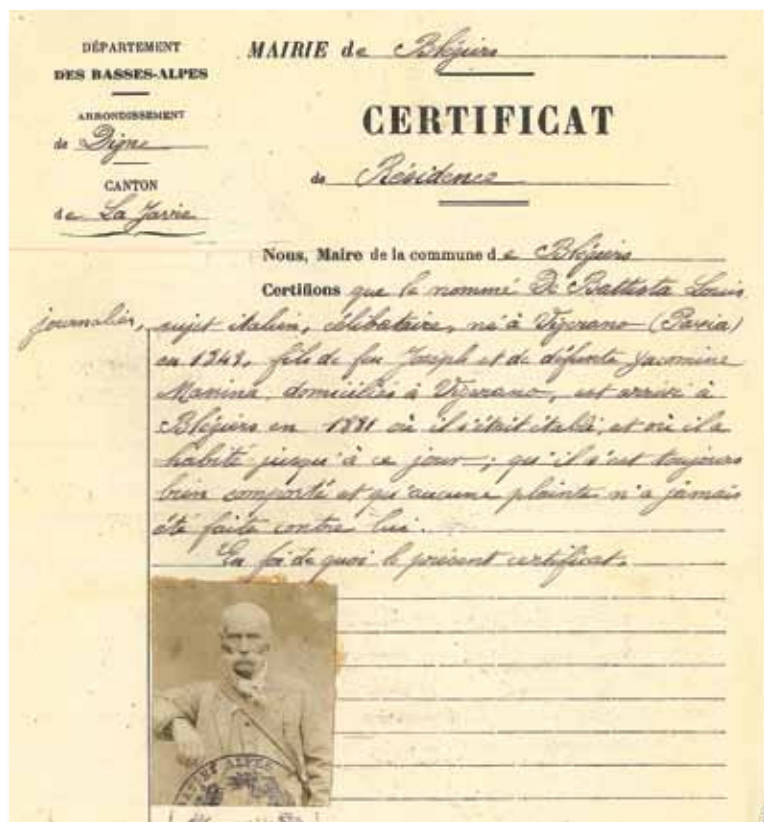 DÉPARTEMENT
DES BASSES-ALPES
ARRONDISSEMENT
de Digne
CANTON
de La Javie
MAIRIE de Bléjiers
CERTIFICAT
de Résidence
Nous, Maire de la commune de Bléjiers
Certifions que le nommé De Battista Louis
journalier, sujet italien, célibataire, né à Vigevano (Pavia)
en 1848, fils de feu Joseph et de défunte Jacomine
Manina, domiciliés à Vigevano, est arrivé à
Bléjiers en 1881 où il s'était établi, et où il a
habité jusqu'à ce jour ; qu'il s'est toujours
bien comporté et qu'aucune plainte n'a jamais
été faite contre lui.
En foi de quoi le présent certificat.
ALPES